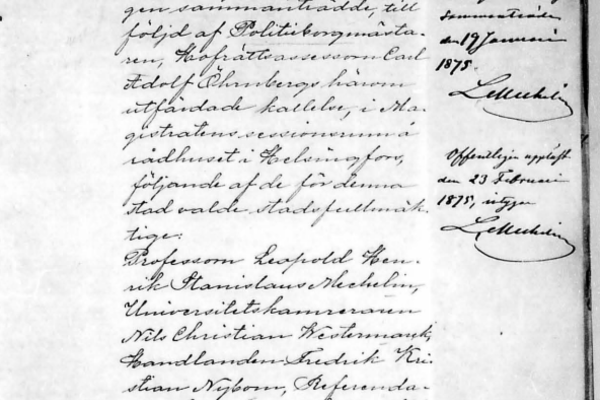 gen sammanträdde, till
följd af Politieborgmästa-
ren, Hofrättsassessorn Carl
Adolf Öhrnbergs härom
utfärdade kallelse, i Ma-
gistratens sessionsrum å
rådhuset i Helsingfors,
följande af de för denna
stad valde stadsfullmäk-
tige:
Professorn Leopold Hen-
rik Stanislaus Mechelin,
Universitetskamreraren
Nils Christian Westermarck,
Handlanden Fredrik Kri-
stian Nybom, Referenda-
den 19 Januari
1875.
L Mechelin
Offentligen uppläst
den 23 Februari
1875, intygar
L Mechelin